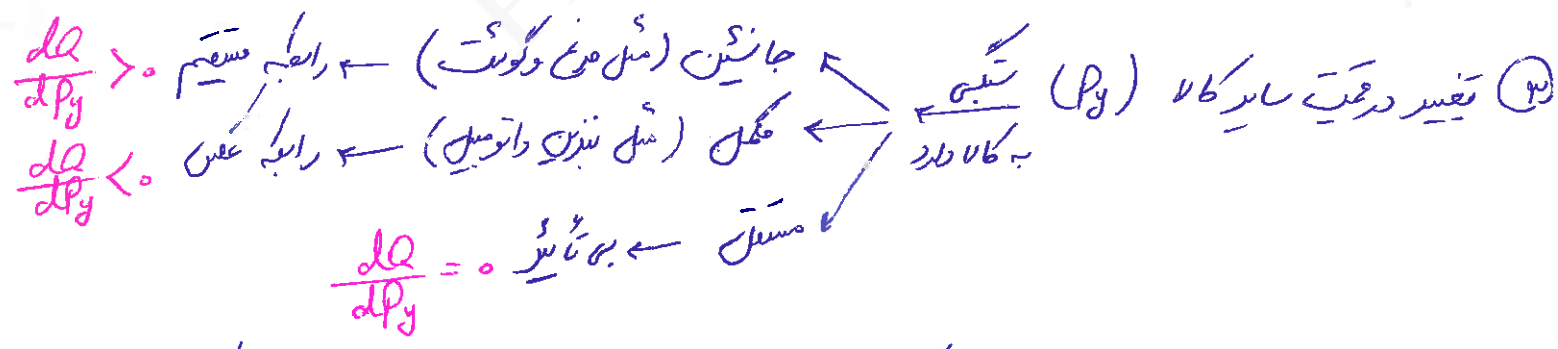 ③ تغییر در قیمت سایر کالا (Py) بستگی به کالا دارد
جانشین (مثل مرغ و گوشت) ← رابطه مستقیم dQ/dPy > 0
مکمل (مثل بنزین و اتومبیل) ← رابطه عکس dQ/dPy < 0
مستقل ← بی تأثیر dQ/dPy = 0